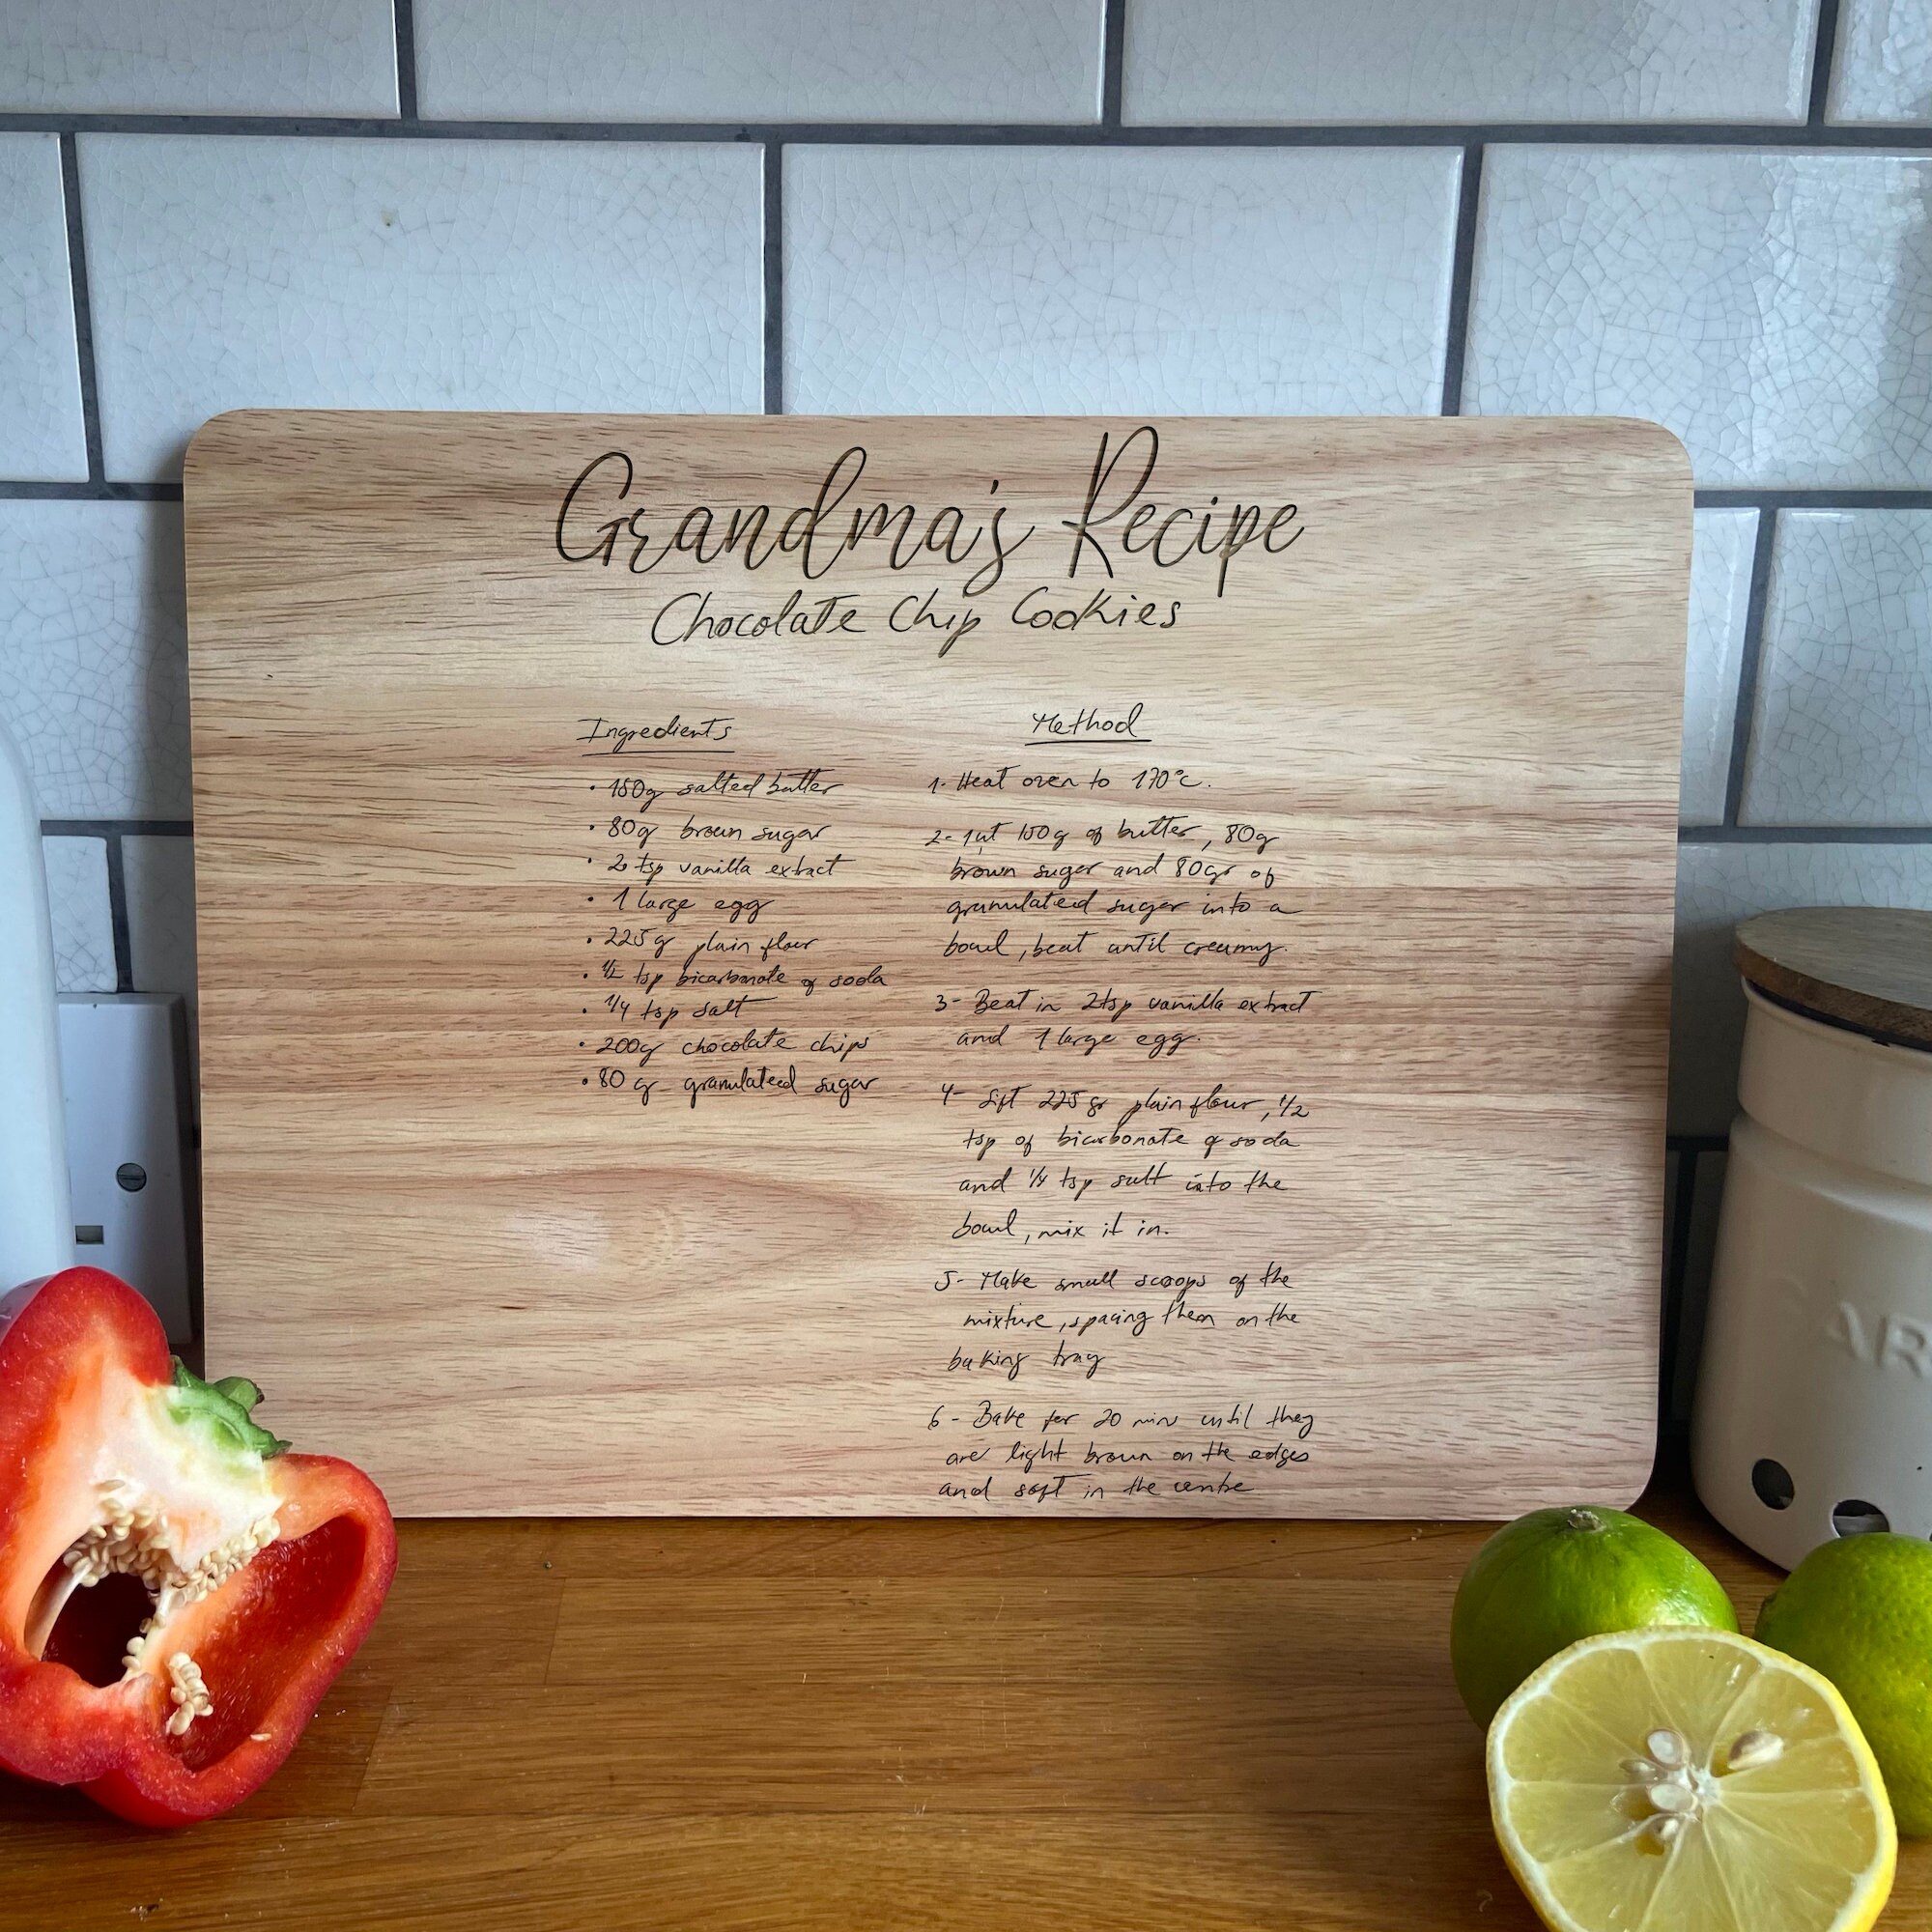 Grandma's Recipe
Chocolate Chip Cookies
Ingredients
• 150g salted butter
• 80g brown sugar
• 2 tsp vanilla extract
• 1 large egg
• 225g plain flour
• 1/2 tsp bicarbonate of soda
• 1/4 tsp salt
• 200g chocolate chips
• 80 g granulated sugar
Method
1- Heat oven to 170°c.
2- Put 150g of butter, 80g
brown sugar and 80gr of
granulated sugar into a
bowl, beat until creamy.
3- Beat in 2tsp vanilla extract
and 1 large egg.
4- Sift 225 gr plain flour, 1/2
tsp of bicarbonate of soda
and 1/4 tsp salt into the
bowl, mix it in.
5- Make small scoops of the
mixture, spacing them on the
baking tray
6- Bake for 20 mins until they
are light brown on the edges
and soft in the centre
AR